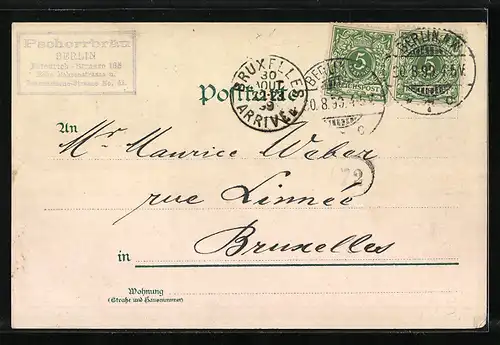 Pschorrbräu
BERLIN
Friedrich-Strasse 165
BRUXELLES
30
AOUT
ARRIVÉE
BERLIN
5
REICHSPOST
BERLIN
5
Postkarte
An
Mr Maurice Weber
rue Linneé
2
in Bruxelles
Wohnung
(Straße und Hausnummer)